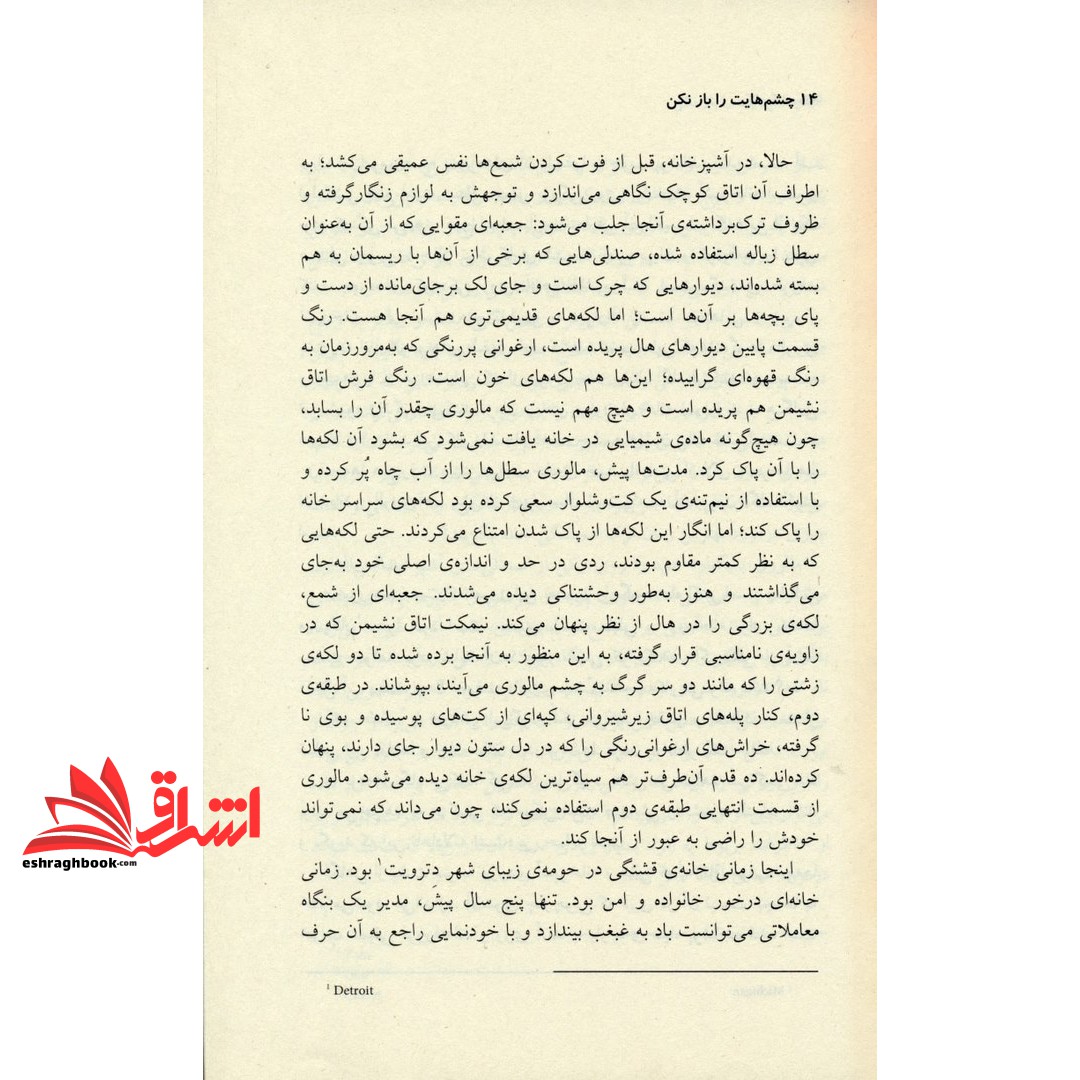 ۱۴ چشم‌هایت را باز نکن
حالا، در آشپزخانه، قبل از فوت کردن شمع‌ها نفس عمیقی می‌کشد؛ به
اطراف آن اتاق کوچک نگاهی می‌اندازد و توجهش به لوازم زنگارگرفته و
ظروف ترک‌برداشته‌ی آنجا جلب می‌شود: جعبه‌ای مقوایی که از آن به‌عنوان
سطل زباله استفاده شده، صندلی‌هایی که برخی از آن‌ها با ریسمان به هم
بسته شده‌اند، دیوارهایی که چرک است و جای لک برجای‌مانده از دست و
پای بچه‌ها بر آن‌ها است؛ اما لکه‌های قدیمی‌تری هم آنجا هست. رنگ
قسمت پایین دیوارهای هال پریده است، ارغوانی پررنگی که به‌مرورزمان به
رنگ قهوه‌ای گراییده؛ این‌ها هم لکه‌های خون است. رنگ فرش اتاق
نشیمن هم پریده است و هیچ مهم نیست که مالوری چقدر آن را بسابد،
چون هیچ‌گونه ماده‌ی شیمیایی در خانه یافت نمی‌شود که بشود آن لکه‌ها
را با آن پاک کرد. مدت‌ها پیش، مالوری سطل‌ها را از آب چاه پُر کرده و
با استفاده از نیم‌تنه‌ی یک کت‌وشلوار سعی کرده بود لکه‌های سراسر خانه
را پاک کند؛ اما انگار این لکه‌ها از پاک شدن امتناع می‌کردند. حتی لکه‌هایی
که به نظر کمتر مقاوم بودند، ردی در حد و اندازه‌ی اصلی خود به‌جای
می‌گذاشتند و هنوز به‌طور وحشتناکی دیده می‌شدند. جعبه‌ای از شمع،
لکه‌ی بزرگی را در هال از نظر پنهان می‌کند. نیمکت اتاق نشیمن که در
زاویه‌ی نامناسبی قرار گرفته، به این منظور به آنجا برده شده تا دو لکه‌ی
زشتی را که مانند دو سر گرگ به چشم مالوری می‌آیند، بپوشاند. در طبقه‌ی
دوم، کنار پله‌های اتاق زیرشیروانی، کپه‌ای از کت‌های پوسیده و بوی نا
گرفته، خراش‌های ارغوانی‌رنگی را که در دل ستون دیوار جای دارند، پنهان
کرده‌اند. ده قدم آن‌طرف‌تر هم سیاه‌ترین لکه‌ی خانه دیده می‌شود. مالوری
از قسمت انتهایی طبقه‌ی دوم استفاده نمی‌کند، چون می‌داند که نمی‌تواند
خودش را راضی به عبور از آنجا کند.
اینجا زمانی خانه‌ی قشنگی در حومه‌ی زیبای شهر دِترویت¹ بود. زمانی
خانه‌ای درخور خانواده و امن بود. تنها پنج سال پیش، مدیر یک بنگاه
معاملاتی می‌توانست باد به غبغب بیندازد و با خودنمایی راجع به آن حرف
¹ Detroit
اشراق
eshraghbook.com